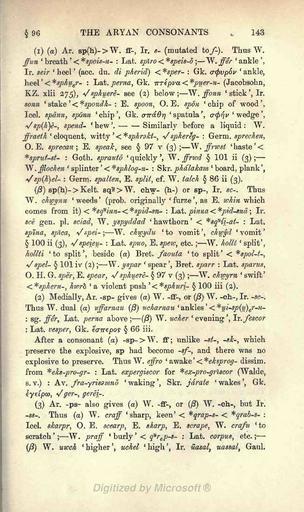 § 96 THE ARYAN CONSONANTS 143
(1) (α) Ar. sp(h)- > W. ff-, Ir. s- (mutated to f-). Thus W.
ffun 'breath' < *spois-n- : Lat. spīro < *speis-ō ;—W. ffêr 'ankle',
Ir. seir 'heel' (acc. du. di pherid) < *sper- : Gk. σφυρόν 'ankle,
heel' < *sphu̯r- : Lat. perna, Gk.
KZ. xlii 275), see (2) below ;—W. ffonn 'stick', Ir.
sonn 'stake' < *spondh- : E. spoon, O. E. spōn 'chip of wood',
Icel. spánn, spónn 'chip', Gk. σπάθη 'spatula', σφήν 'wedge',
'hew'. — Similarly before a liquid : W.
ffraeth 'eloquent, witty' : Germ. sprechen,
O. E. sprecan ; E. speak, see § 97 v (3) ;—W. ffrwst 'haste' <
*sprut-st- : Goth. sprautō 'quickly', W. ffrwd § 101 ii (3) ;—
W. fflochen 'splinter' : Skr. phálakam 'board, plank',
: Germ. spalten, E. split, cf. W. talch § 86 ii (3).
(β) sp(h)- > Kelt. > W. chw- (h-) or sp-, Ir. sc-. Thus
W. chwynn 'weeds' (prob. originally 'furze', as E. whin which
comes from it) : Lat. pinna < *pitd-snā ; Ir.
scē gen. pl. sciad, W. yspyddad 'hawthorn' : Lat.
spīna, spīca, ;—W. chwydu 'to vomit', chwŷd 'vomit'
§ 100 ii (3), : Lat. spuo, E. spew, etc. ;—W. hollt 'split',
hollti 'to split', beside (α) Bret. faouta 'to split' < *spol-t-,
§ 101 iv (2) ;—W. yspar 'spear', Bret. sparr : Lat. sparus,
O. H. G. spër, E. spear, § 97 v (3) ;—W. chwyrn 'swift'
hwrð 'a violent push' § 100 iii (2).
(2) Medially, Ar. -sp- gives (α) W. -ff-, or (β) W. -ch-, Ir. -sc-.
Thus W. dual (α) uffarnau (β) ucharnau 'ankles'
: sg. ffêr, Lat. perna above ;—(β) W. ucher 'evening', Ir. fescor
: Lat. vesper, Gk. ἕσπερος § 66 iii.
After a consonant (α) -sp- > W. ff ; unlike -st-, -sk-, which
preserve the explosive, sp had become sf-, and there was no
explosive to preserve. Thus W. effro 'awake' < *eksprog- dissim.
from *eks-pro-gr- : Lat. expergiscor for *ex-pro-griscor (Walde,
s. v.) : Av. fra-γrisəmnō 'waking', Skr. járate 'wakes', Gk.
ἐγείρω,
(3) Ar. -ps- also gives (α) W. -ff-, or (β) W. -ch-, but Ir.
-ss-. Thus (α) W. craff 'sharp, keen' < *qrap-s- < *qrab-s- :
Icel. skarpr, O. E. scearp, E. sharp, E. scrape, W. crafu 'to
scratch' ;—W. praff 'burly' : Lat. corpus, etc. ;—
(β) W. uwch 'higher', uchel 'high', Ir. ūasal, uassal, Gaul.
Digitized by Microsoft ®